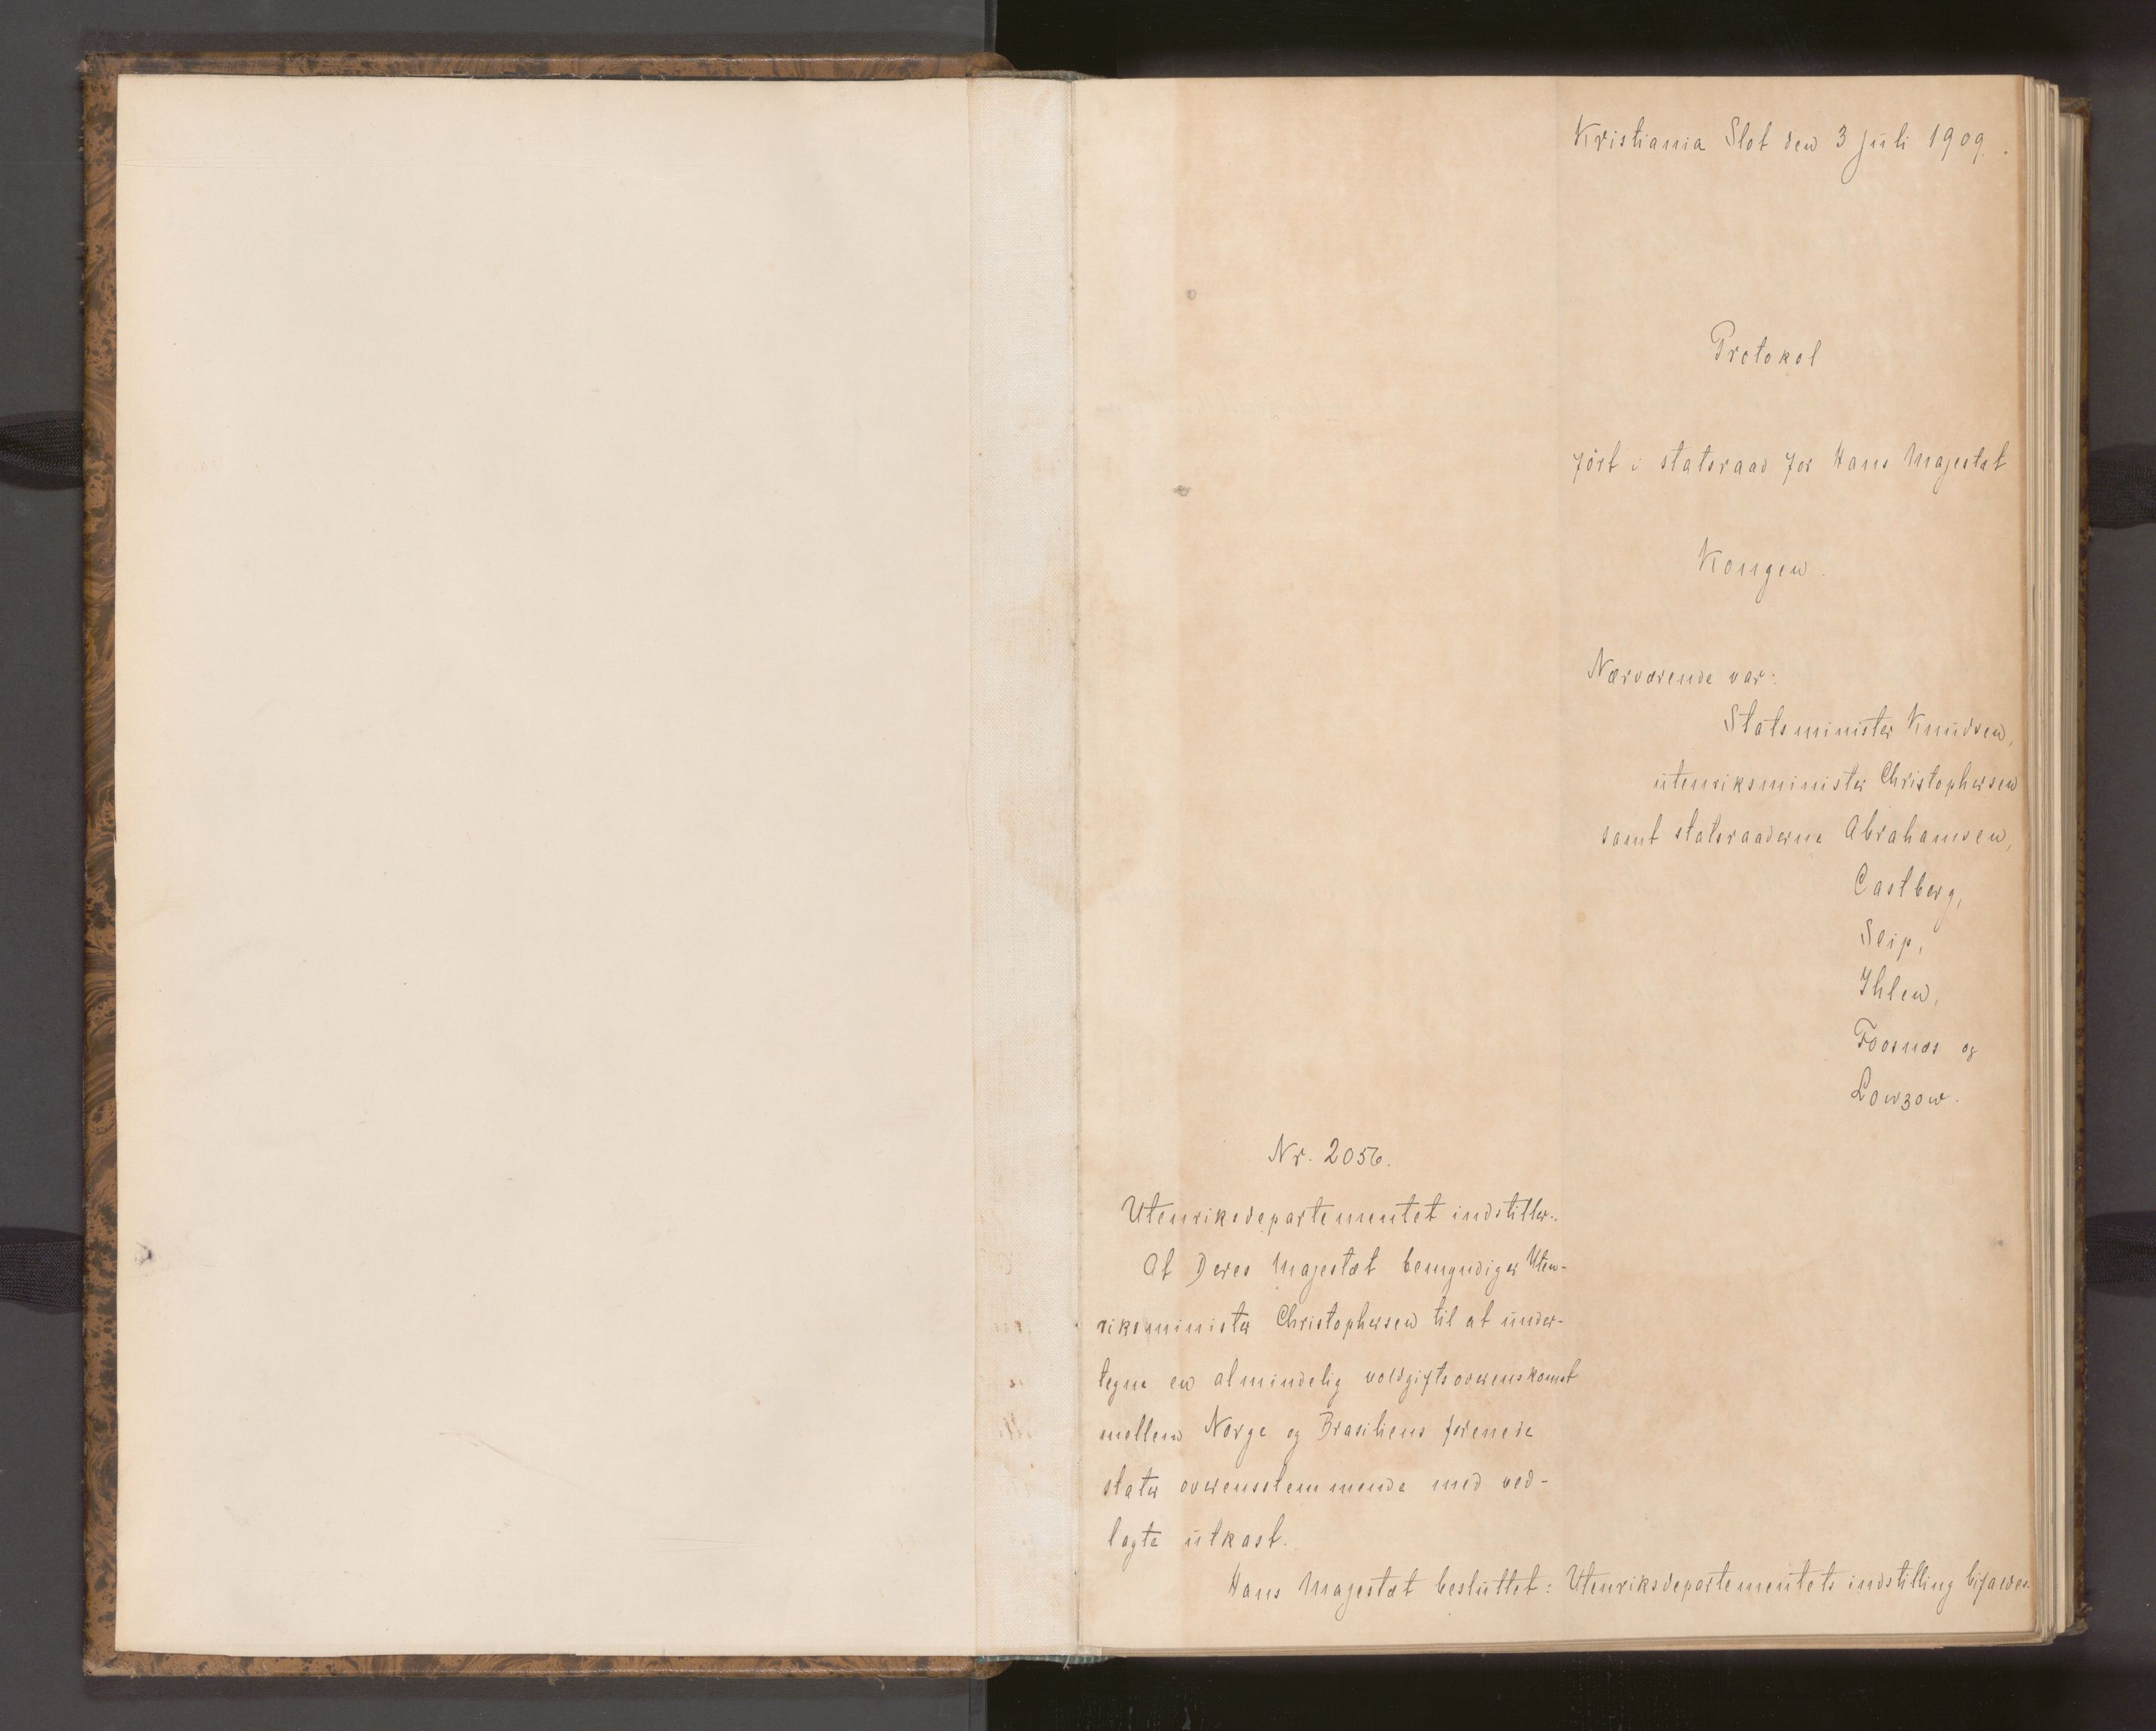 Kristiania Slot den 3 juli 1909.
Protokol
ført i statsraad for Hans Majestæt
Kongen.
Nærværende var:
Statsminister Knudsen,
utenriksminister Christophersen
samt statsraaderne Abrahamsen,
Castberg,
Seip,
Ihlen,
Foosnæs og
Lowzow.
Nr. 2056.
Utenriksdepartementet indstiller:
At Deres Majestæt bemyndiger Uten-
riksminister Christophersen til at under-
tegne en almindelig voldgiftsoverenskomst
mellem Norge og Brasiliens forenede
stater overensstemmende med ved-
lagte utkast.
Hans Majestæt besluttet: Utenriksdepartementets indstilling bifaldes.